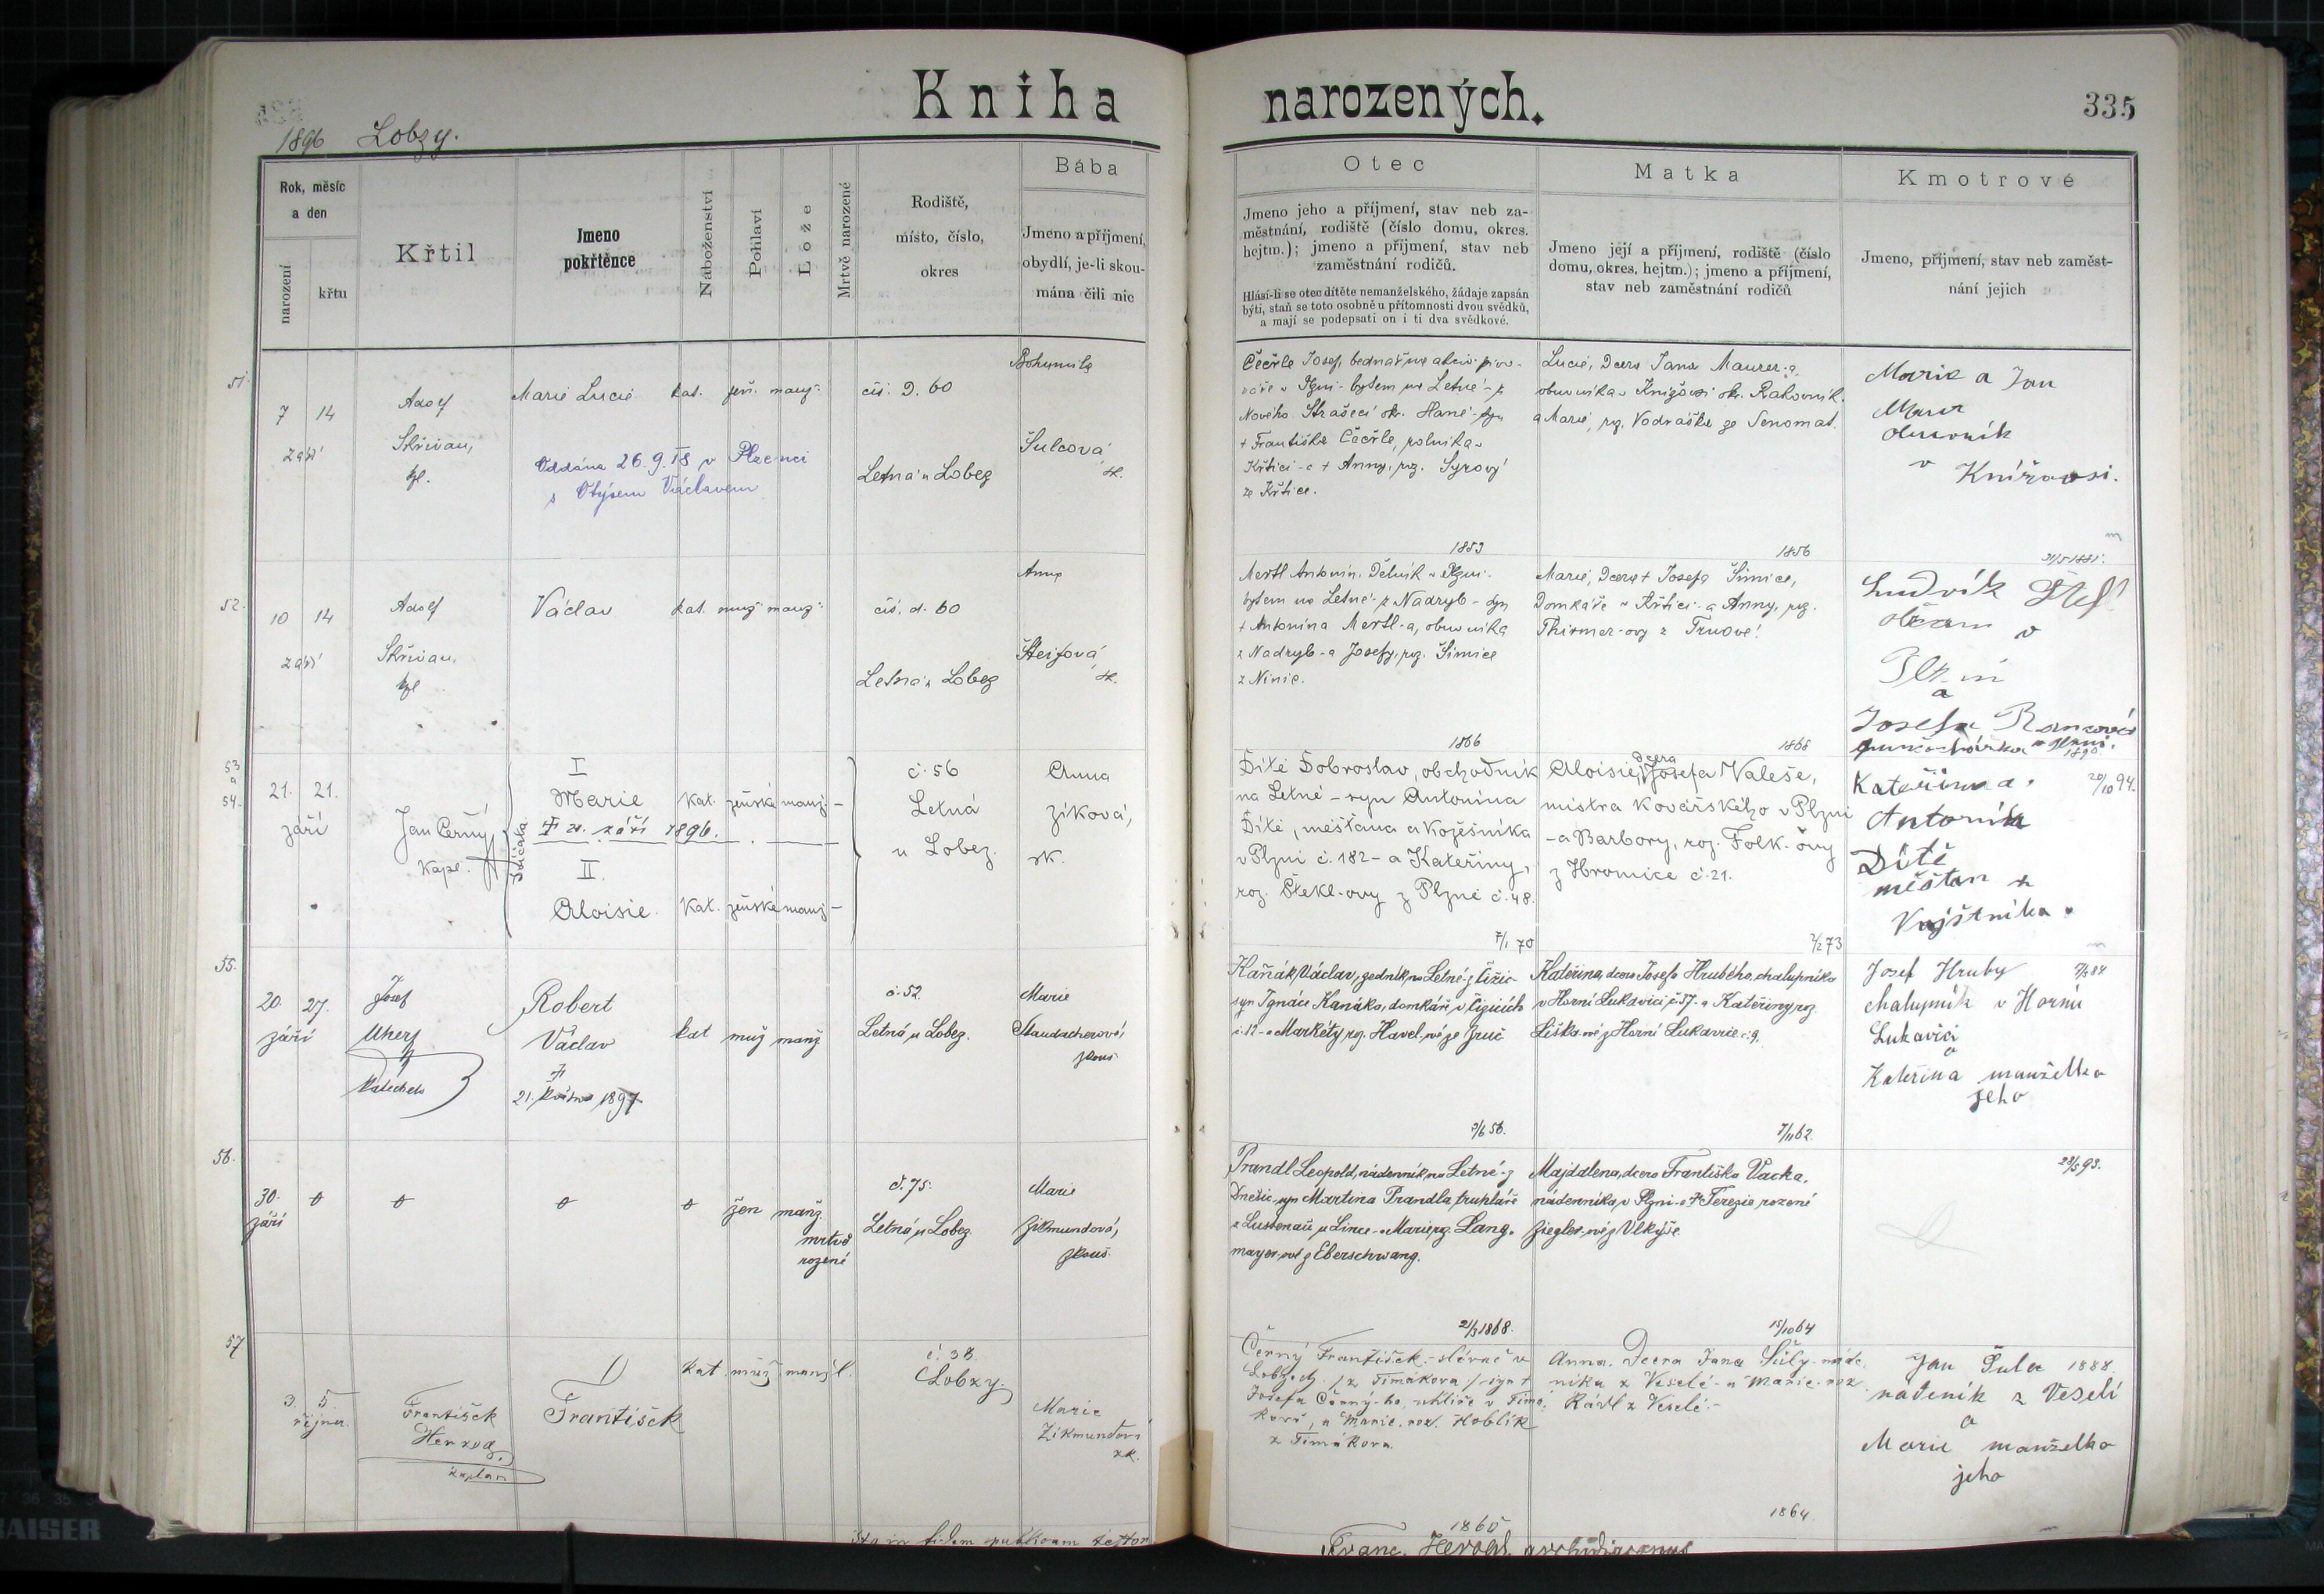 Kniha narozených.
335
1896 Lobzy.
Rok, měsíc a den
narození
křtu
Křtil
Jmeno pokřtěnce
Náboženství
Pohlaví
Lože
Mrtvě narozené
Rodiště,
místo, číslo,
okres
Bába
Jmeno a příjmení,
obydlí, je-li skou-
mána čili nic
Otec
Jmeno jeho a příjmení, stav neb za-
městnání, rodiště (číslo domu, okres.
hejtm.); jmeno a příjmení, stav neb
zaměstnání rodičů.
Hlásí-li se otec dítěte nemanželského, žádaje zapsán
býti, staň se toto osobně u přítomnosti dvou svědků,
a mají se podepsati on i ti dva svědkové.
Matka
Jmeno její a příjmení, rodiště (číslo
domu, okres. hejtm.); jmeno a příjmení,
stav neb zaměstnání rodičů
Kmotrové
Jmeno, příjmení, stav neb zaměst-
nání jejich
51.
7 14
září
Adolf
Skřivan,
kpl.
Marie Lucie
kat. žen. manž.
Oddána 26.9.18 v Plzenci
s Otýsem Václavem
čís. D. 60
Letná u Lobez
Bohumila
Šulcová
zk.
Čečrle Josef, bednář v akciov. pivo-
váře v Plzni - bytem na Letné - z
Nového Strašecí - syn
+ Františka Čečrle, rolníka v
Křtici - a + Anny, roz. Syrový
ze Křtice.
Lucie, Dcera Jana Maurer-a,
obuvníka v Kněžovsi okr. Rakovník.
a Marie, roz. Vodrážka ze Senomat.
Marie a Jan
obuvník
v
52.
10 14
září
Adolf
Skřivan,
kpl
Václav
kat. muž. manž.
čís. d. 60
Letná u Lobez
Anna
Šteifová
zk.
1853
Mertl Antonín, Dělník v Plzni.
bytem na Letné - z Nadryb - syn
+ Antonína Mertl-a, obuvníka
z Nadryb - a Josefy, roz. Šimice
z Ninic.
1856
Marie, Dcera + Josefa Šimice,
Domkáře v Křtici - a Anny, roz.
Thirmer-ovy z Trnové.
31/5 1881.
Ludvík
v
Plzni
a
Josefa
v Plzni.
1890
53
a
54.
21. 21.
září
Jan Černý,
kapl.
Dvojčata
I
Marie
kat. ženské manž. -
† 21. září 1896.
II.
Aloisie.
kat. ženské manž. -
č. 56
Letná
u Lobez.
Anna
Zíková,
zk.
1866
Dítě Dobroslav, obchodník
na Letné - syn Antonína
Dítě, měšťana a kožešníka
v Plzni č. 182 - a Kateřiny,
roz. Štekl-ovy z Plzně č. 48.
1868
Aloisie, dcera Josefa Valeše,
mistra kovářského v Plzni
- a Barbory, roz. Folk-ovy
z Hromice č. 21.
20/10 94.
Kateřina a
Antonín
Dítě
měšťan a
55.
20. 27.
září
Josef
Uherz
katecheta
Robert
Václav
†
21. 1897
kat muž manž
č. 52.
Letná u Lobez.
Marie
Staudacherová,
zkouš
7/1 70
Kaňák Václav, zedník na Letné - z Čižic -
syn Ignáce Kaňáka, domkáře v Čižicích
č. 12 - a Markéty, roz. Havel-ové ze Zruč
2/2 73
Kateřina, dcera Josefa Hrubého, chalupníka
v Horní Lukavici, č. 57 - a Kateřiny, roz.
Liška-ové z Horní Lukavice č. 9.
Josef Hruby
chalupník v Horní
Lukavici
a
Kateřina manželka
jeho
56.
30.
září
žen manž.
mrtvě
rozené
č. 75.
Letná u Lobez.
Marie
Zikmundová,
zkouš.
9/6 56.
Prandl Leopold, nádenník na Letné - z
Dnešic, syn Martina Prandla, truhláře
z Lustenau u Lince - a Marie, roz. Lang-
mayer-ové z Eberschwang.
7/11 62.
Majdalena, dcera Františka Vacka,
nádenníka v Plzni - a † Terezie rozené
Ziegler-ové z Vlkýše.
23/5 93.
57
3. 5.
října.
František
Herzog,
kaplan
František
kat. muž. manžl.
č. 38.
Lobzy.
Marie
Zikmundová
zk.
21/3 1868.
Černý František - slévač v
Lobzech / z Timákova / - syn +
Josefa Černý-ho, uhlíře v Timá-
kově, a Marie, roz. Hoblík
z Timákova.
15/10 64
Anna. Dcera Jana Šůly - náde-
níka z Veselé - a Marie, roz.
Rádl z Veselé. -
1888.
Jan Šula
nádeník z Veselí
a
Marie manželka
jeho
1865
1864.
Ita in fidem publicam testor
Franc. Herold, archidiaconus